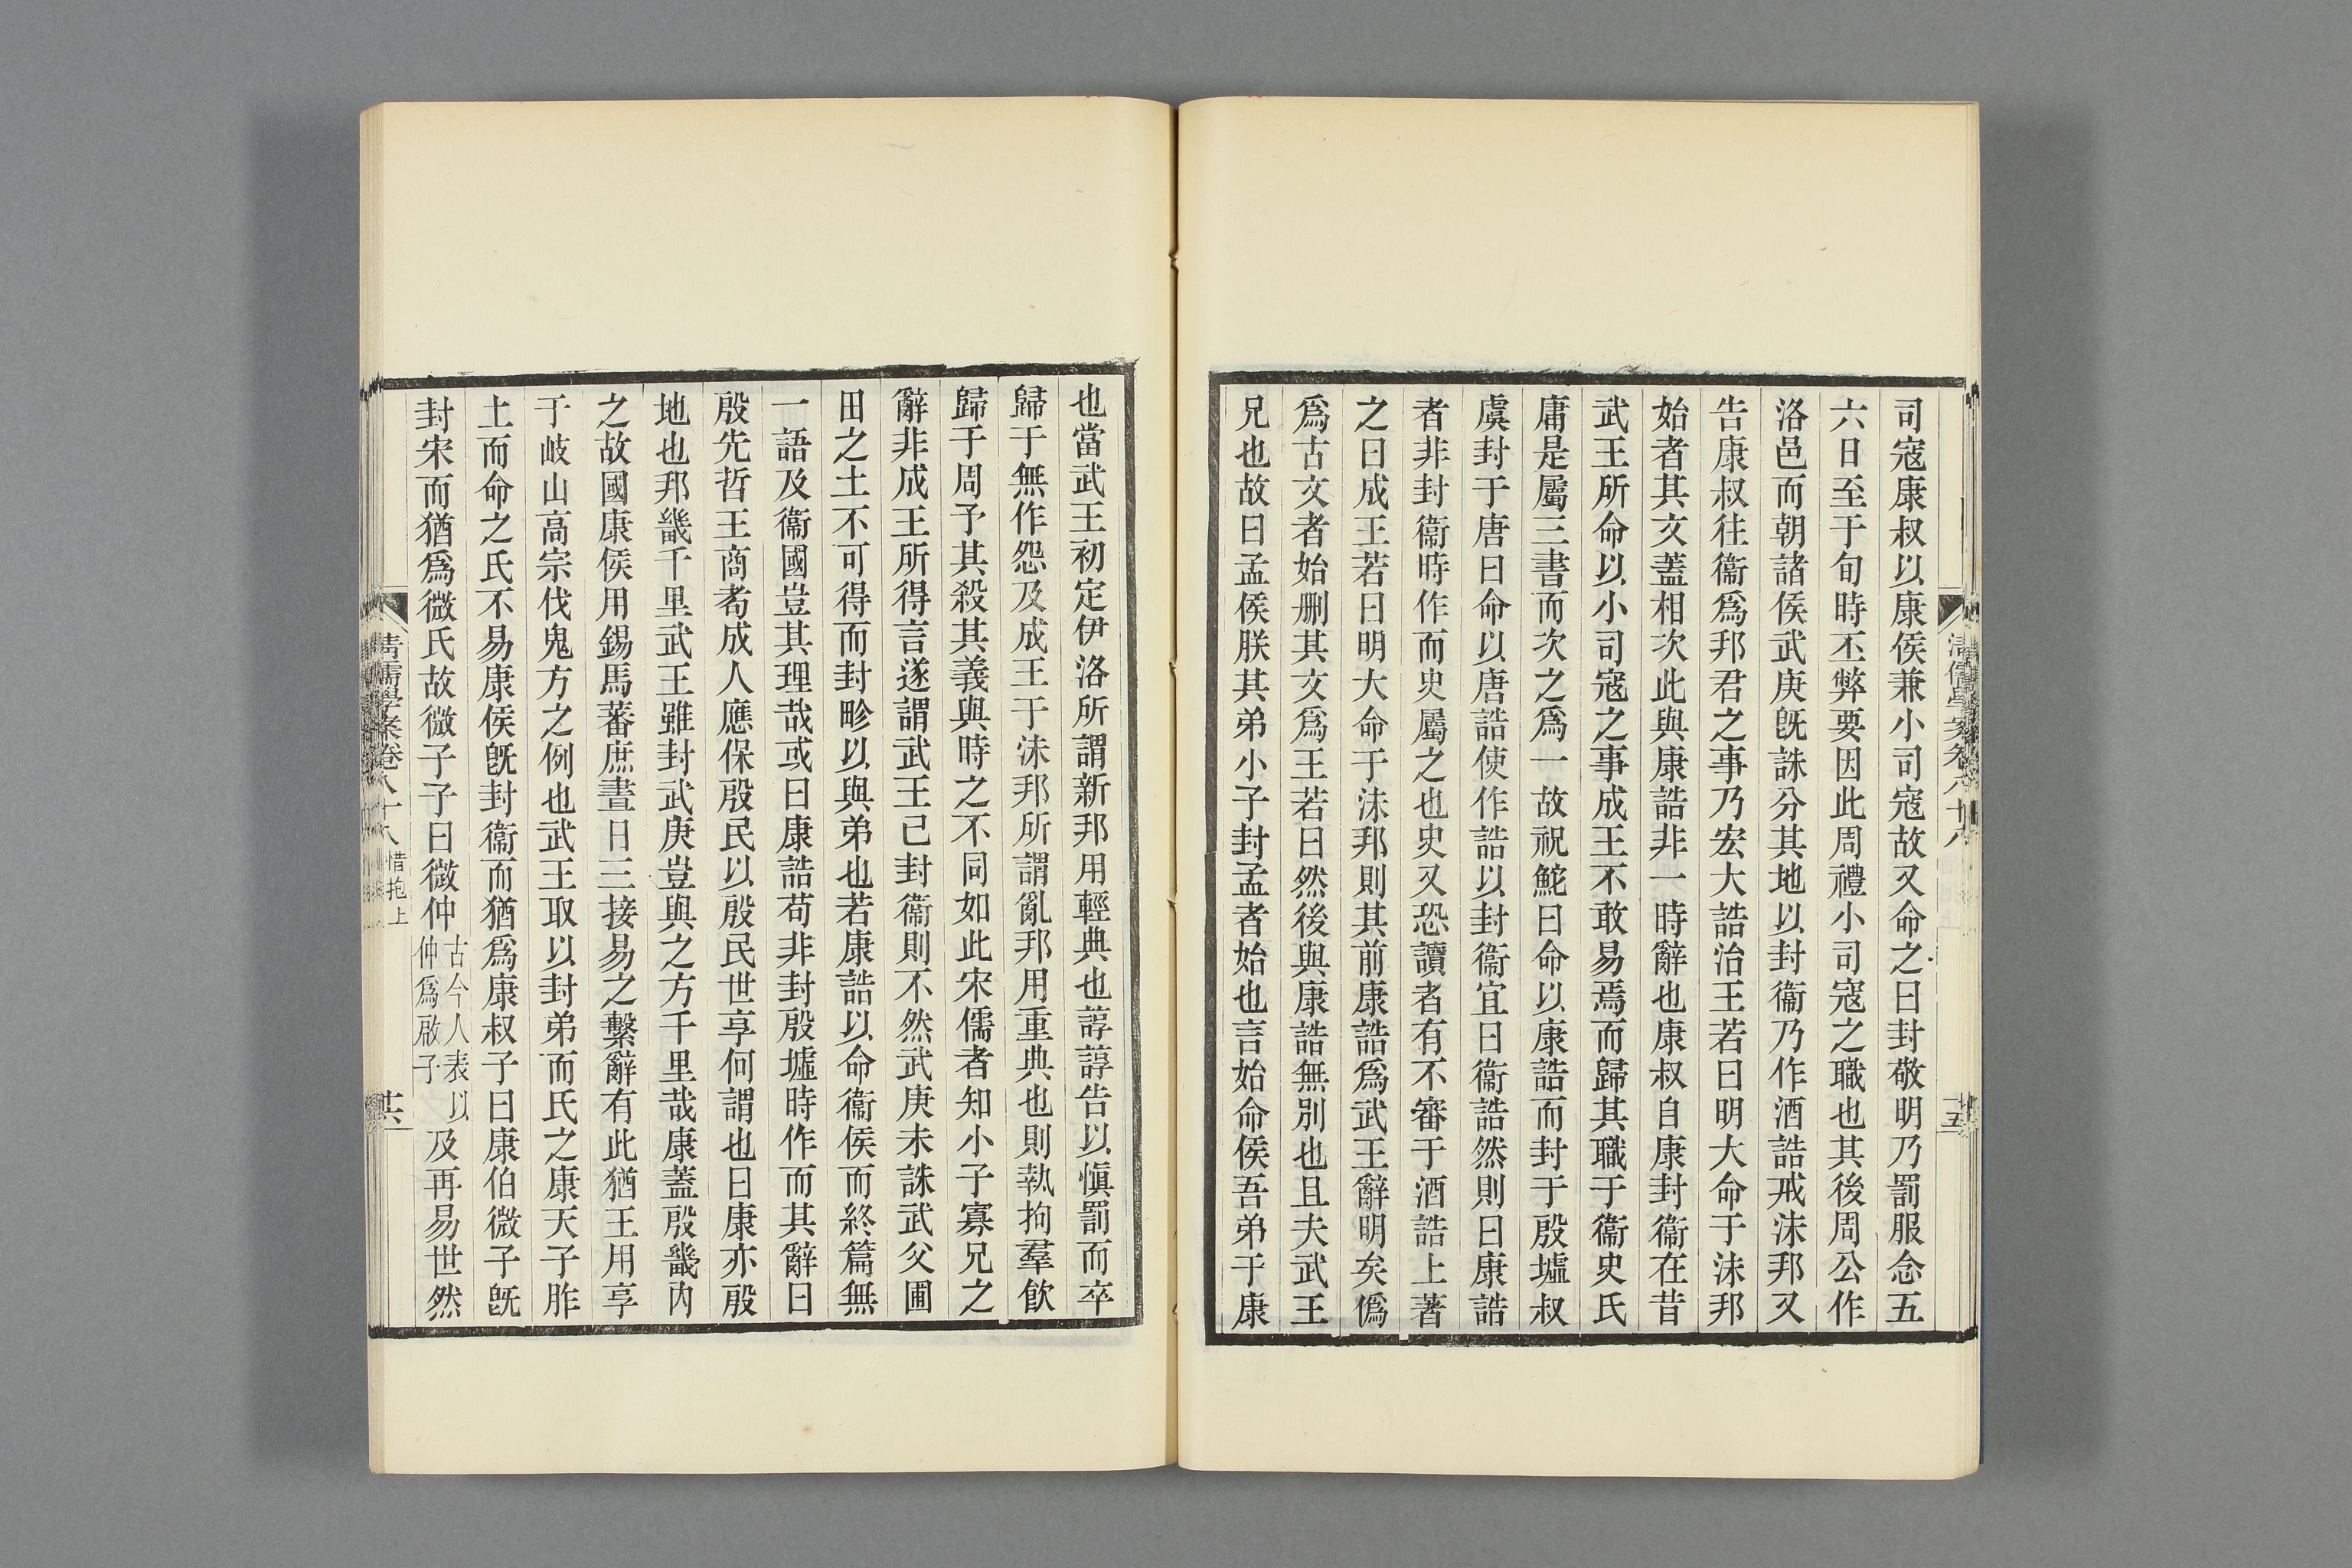 司寇康叔以康侯兼小司寇故又命之曰封敬明乃罰服念五
六日至于旬時丕弊要因此周禮小司寇之職也其後周公作
洛邑而朝諸侯武庚旣誅分其地以封衞乃作酒誥戒沬邦又
告康叔往衞爲邦君之事乃宏大誥治王若曰明大命于沬邦
始者其文蓋相次此與康誥非一時辭也康叔自康封衞在昔
武王所命以小司寇之事成王不敢易焉而歸其職于衞史氏
庸是屬三書而次之爲一故祝鮀曰命以康誥而封于殷墟叔
虞封于唐曰命以唐誥使作誥以封衞宜曰衞誥然則曰康誥
者非封衞時作而史屬之也史又恐讀者有不審于酒誥上著
之曰成王若曰明大命于沬邦則其前康誥爲武王辭明矣僞
爲古文者始删其文爲王若曰然後與康誥無別也且夫武王
兄也故曰孟侯朕其弟小子封孟者始也言始命侯吾弟于康
也當武王初定伊洛所謂新邦用輕典也諄諄告以愼罰而卒
歸于無作怨及成王于沬邦所謂亂邦用重典也則執拘羣飮
歸于周予其殺其義與時之不同如此宋儒者知小子寡兄之
辭非成王所得言遂謂武王已封衞則不然武庚未誅武父圃
田之土不可得而封畛以與弟也若康誥以命衞侯而終篇無
一語及衞國豈其理哉或曰康誥苟非封殷墟時作而其辭曰
殷先哲王商耇成人應保殷民以殷民世享何謂也曰康亦殷
地也邦畿千里武王雖封武庚豈與之方千里哉康蓋殷畿內
之故國康侯用錫馬蕃庶晝日三接易之繫辭有此猶王用享
于岐山高宗伐鬼方之例也武王取以封弟而氏之康天子胙
土而命之氏不易康侯旣封衞而猶爲康叔子曰康伯微子旣
封宋而猶爲微氏故微子子曰微仲古今人表以仲爲啟子及再易世然
清儒學案卷八十八 惜抱上 廿六